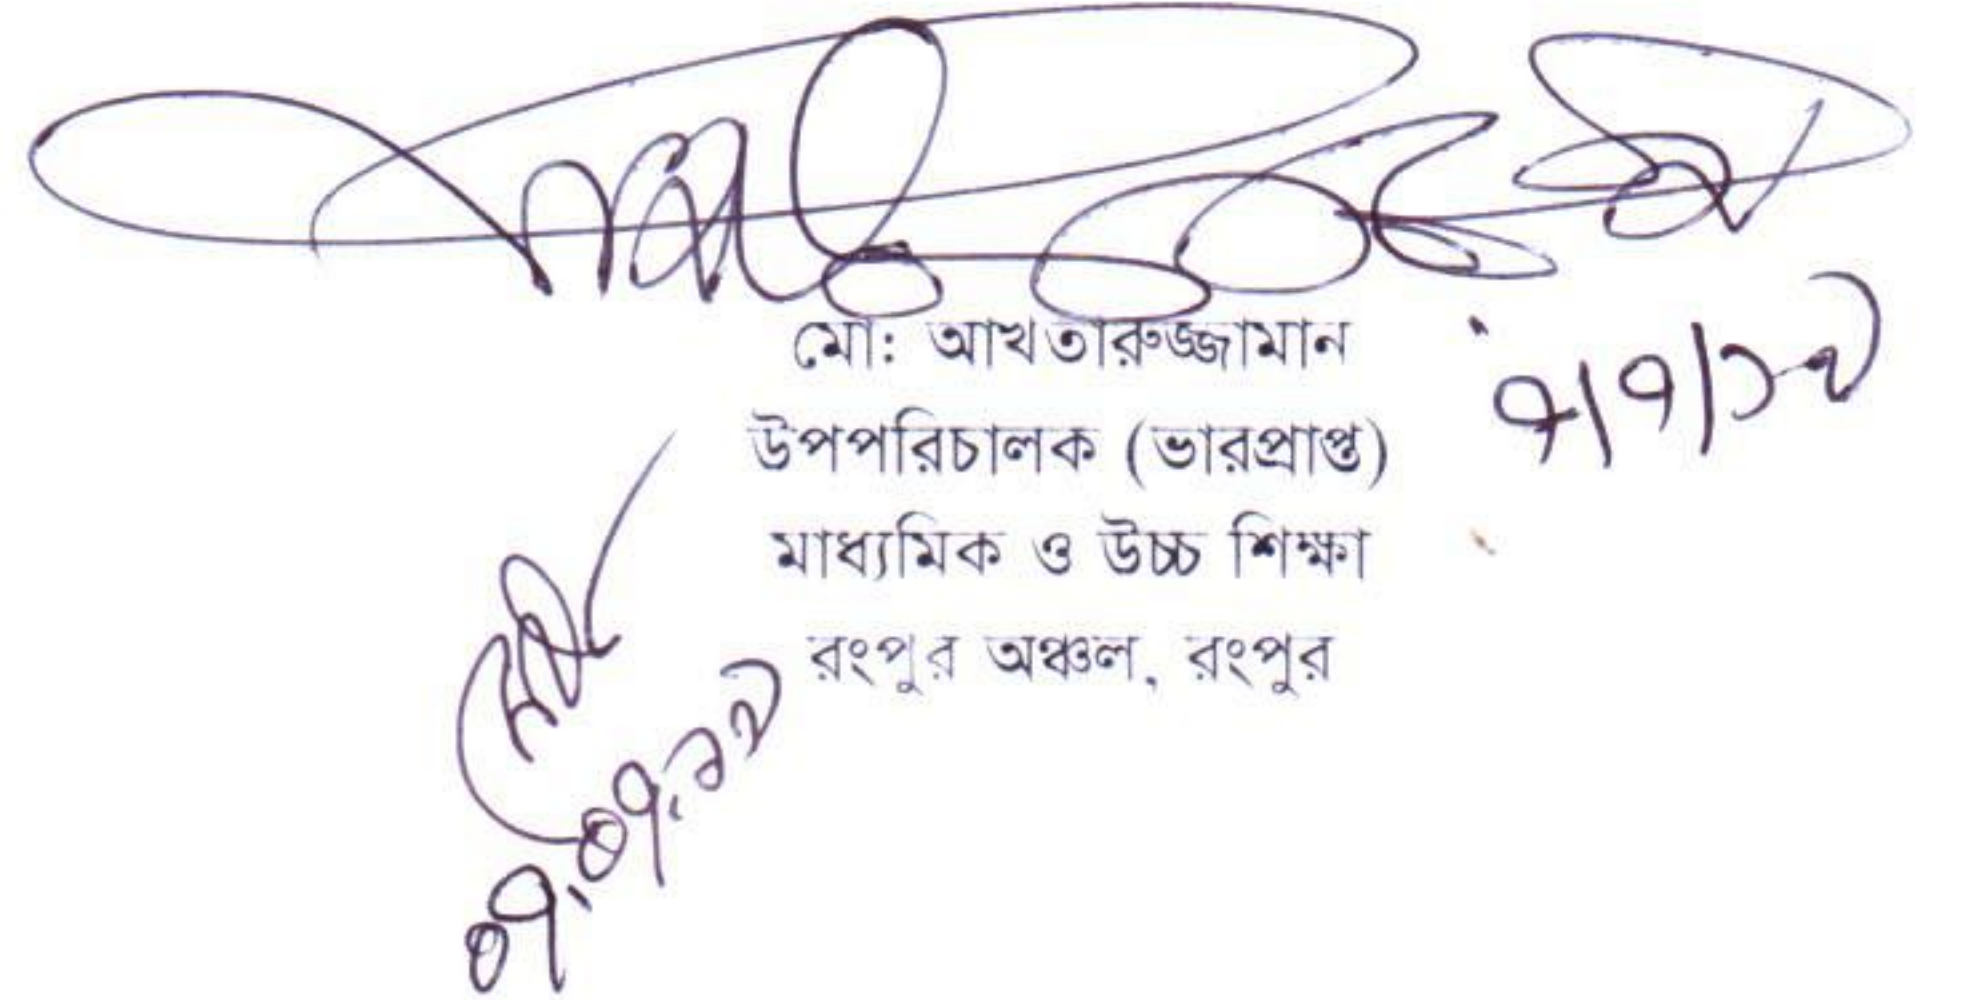 মো: আখতারুজ্জামান
৭/৭/১৯
উপপরিচালক (ভারপ্রাপ্ত)
মাধ্যমিক ও উচ্চ শিক্ষা
রংপুর অঞ্চল, রংপুর
০৭.০৭.১৯